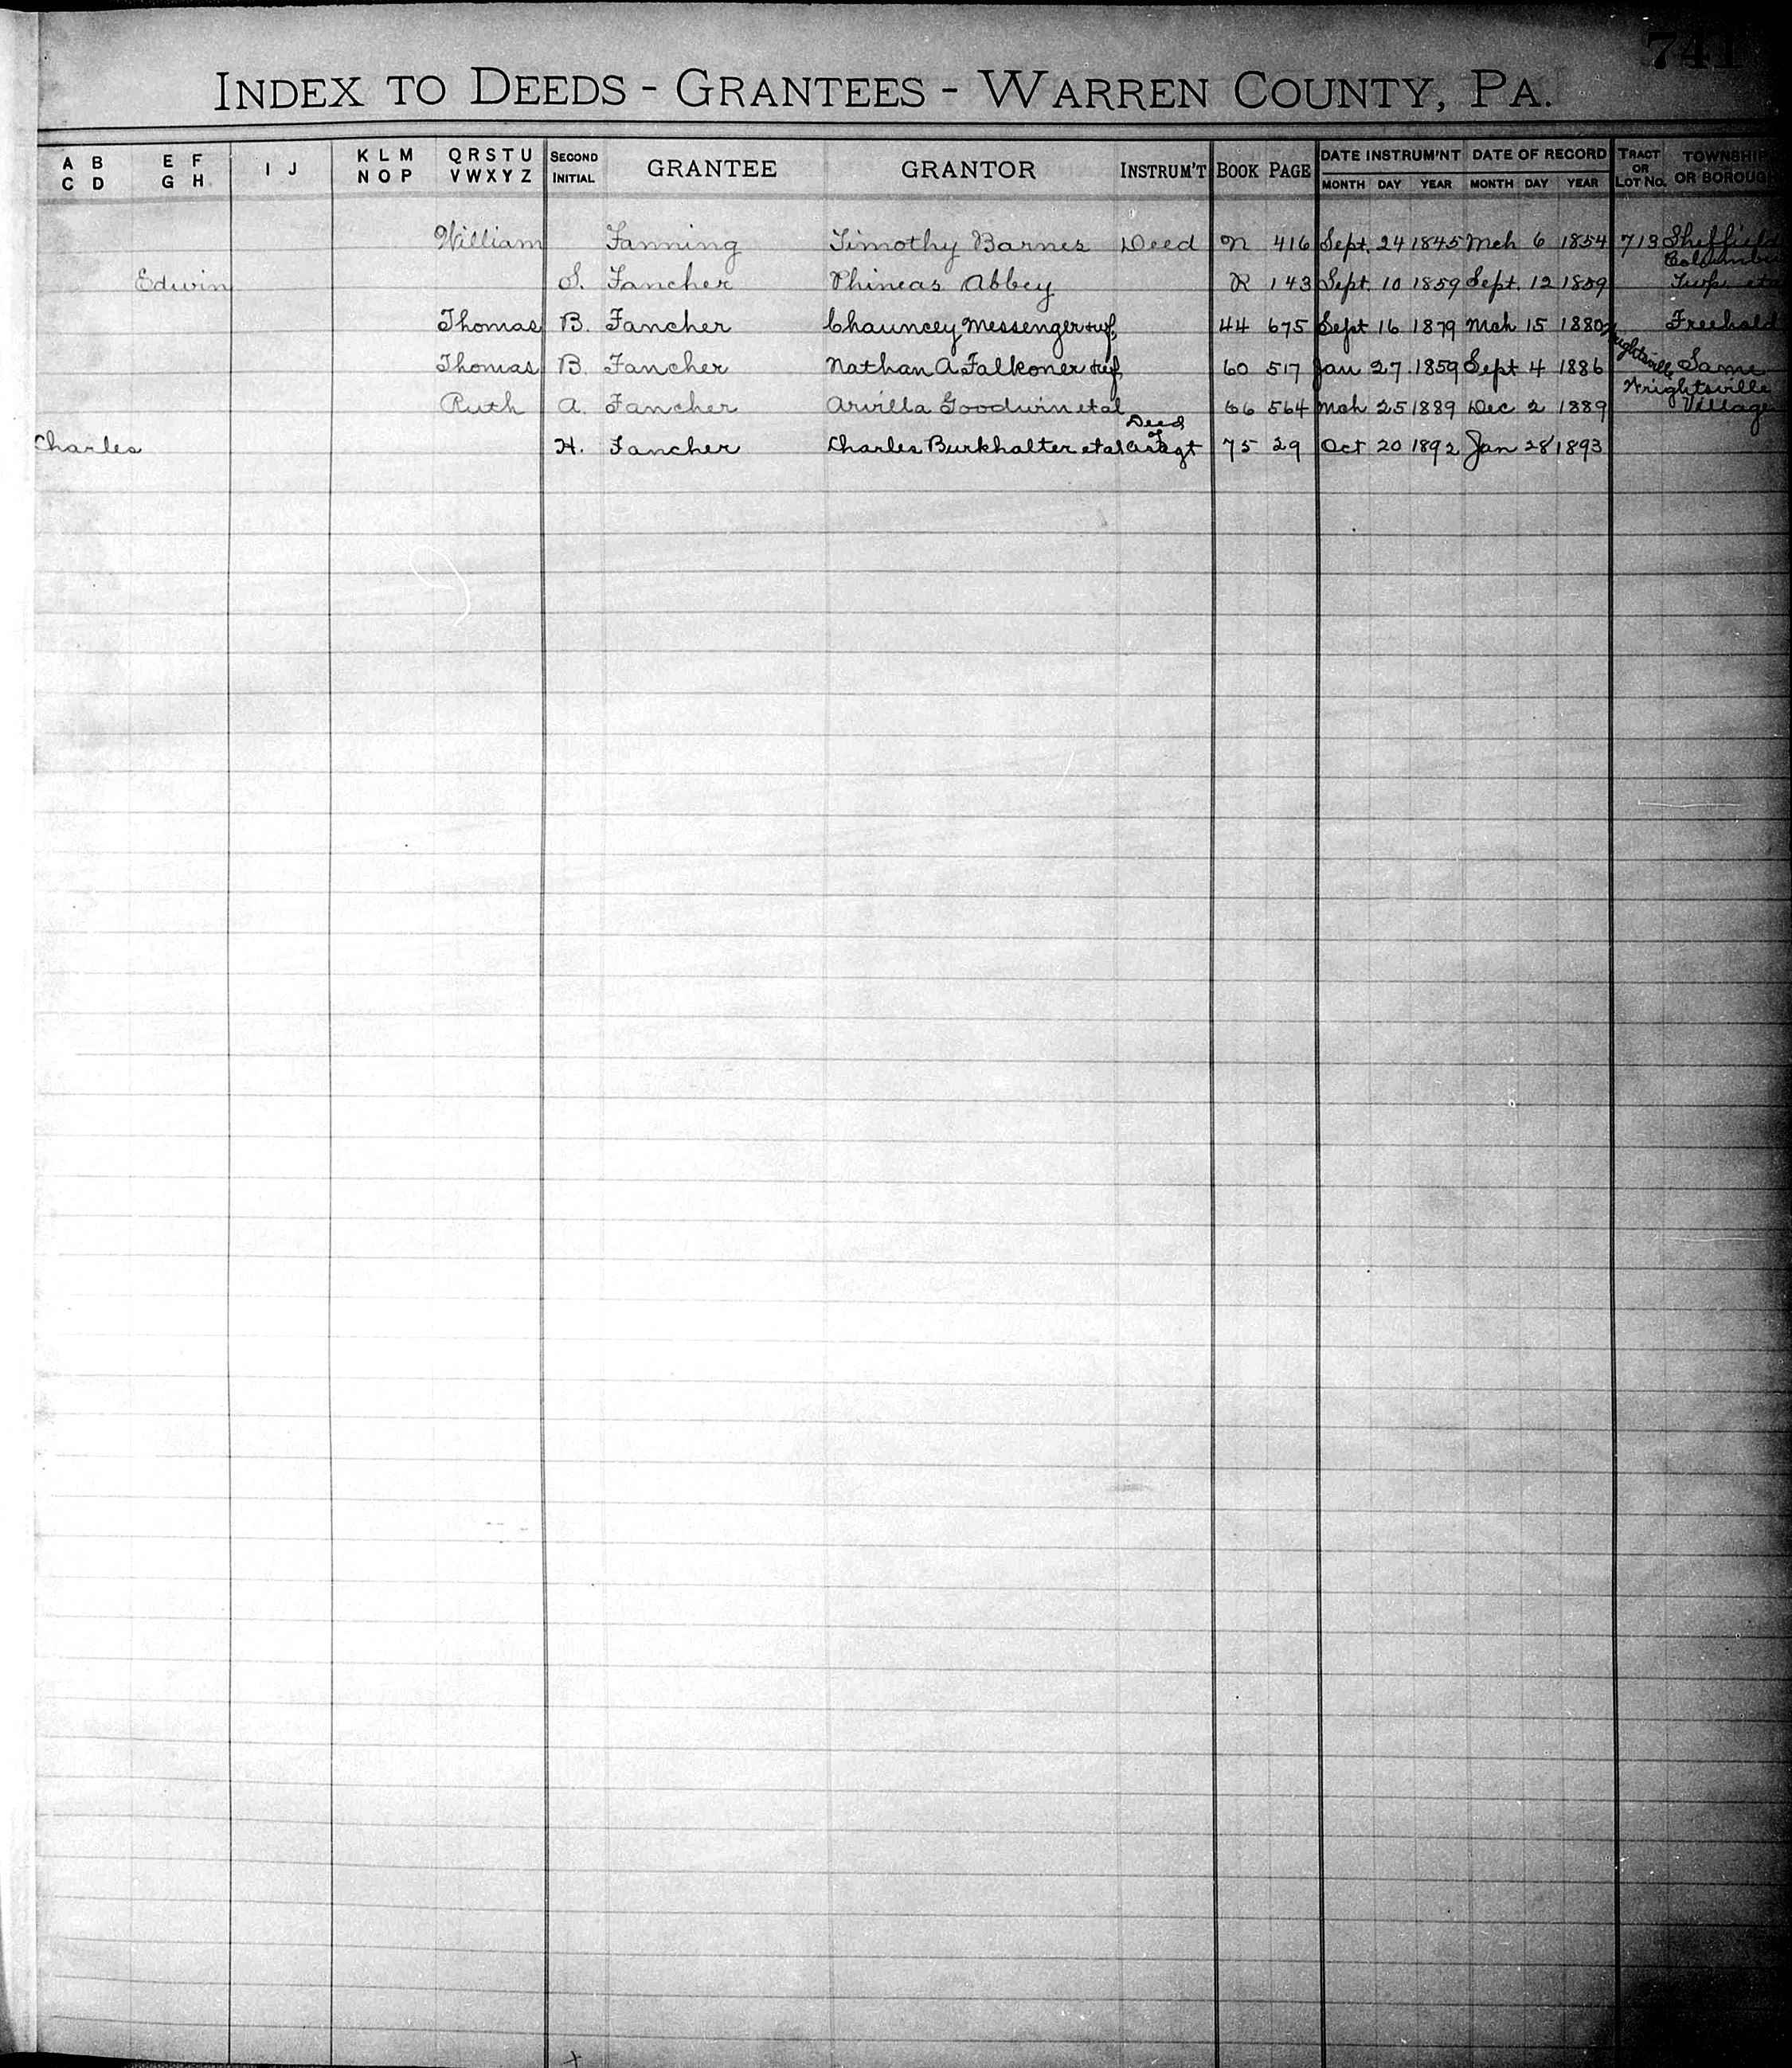 741
INDEX TO DEEDS - GRANTEES - WARREN COUNTY, PA.
A B C D E F G H I J K L M N O P Q R S T U V W X Y Z SECOND INITIAL GRANTEE GRANTOR INSTRUM'T BOOK PAGE DATE INSTRUM'NT MONTH DAY YEAR DATE OF RECORD MONTH DAY YEAR TRACT OR LOT NO. TOWNSHIP OR BOROUGH
William Fanning Timothy Barnes Deed N 416 Sept. 24 1845 Mch 6 1854 713 Sheffield
Edwin S. Fancher Phineas Abbey R 143 Sept. 10 1859 Sept. 12 1859 Columbus Twp. etc
Thomas B. Fancher Chauncey Messenger & wf. 44 675 Sept 16 1879 Mch 15 1880 Freehold
Thomas B. Fancher Nathan A. Falkoner & wf. 60 517 Jan 27 1859 Sept 4 1886 Wrightsville Same
Ruth A. Fancher Arvilla Goodwin et al 66 564 Mch 25 1889 Dec 2 1889 Wrightsville Village
Charles H. Fancher Charles Burkhalter et al Deed of Assgt 75 29 Oct 20 1892 Jan 28 1893